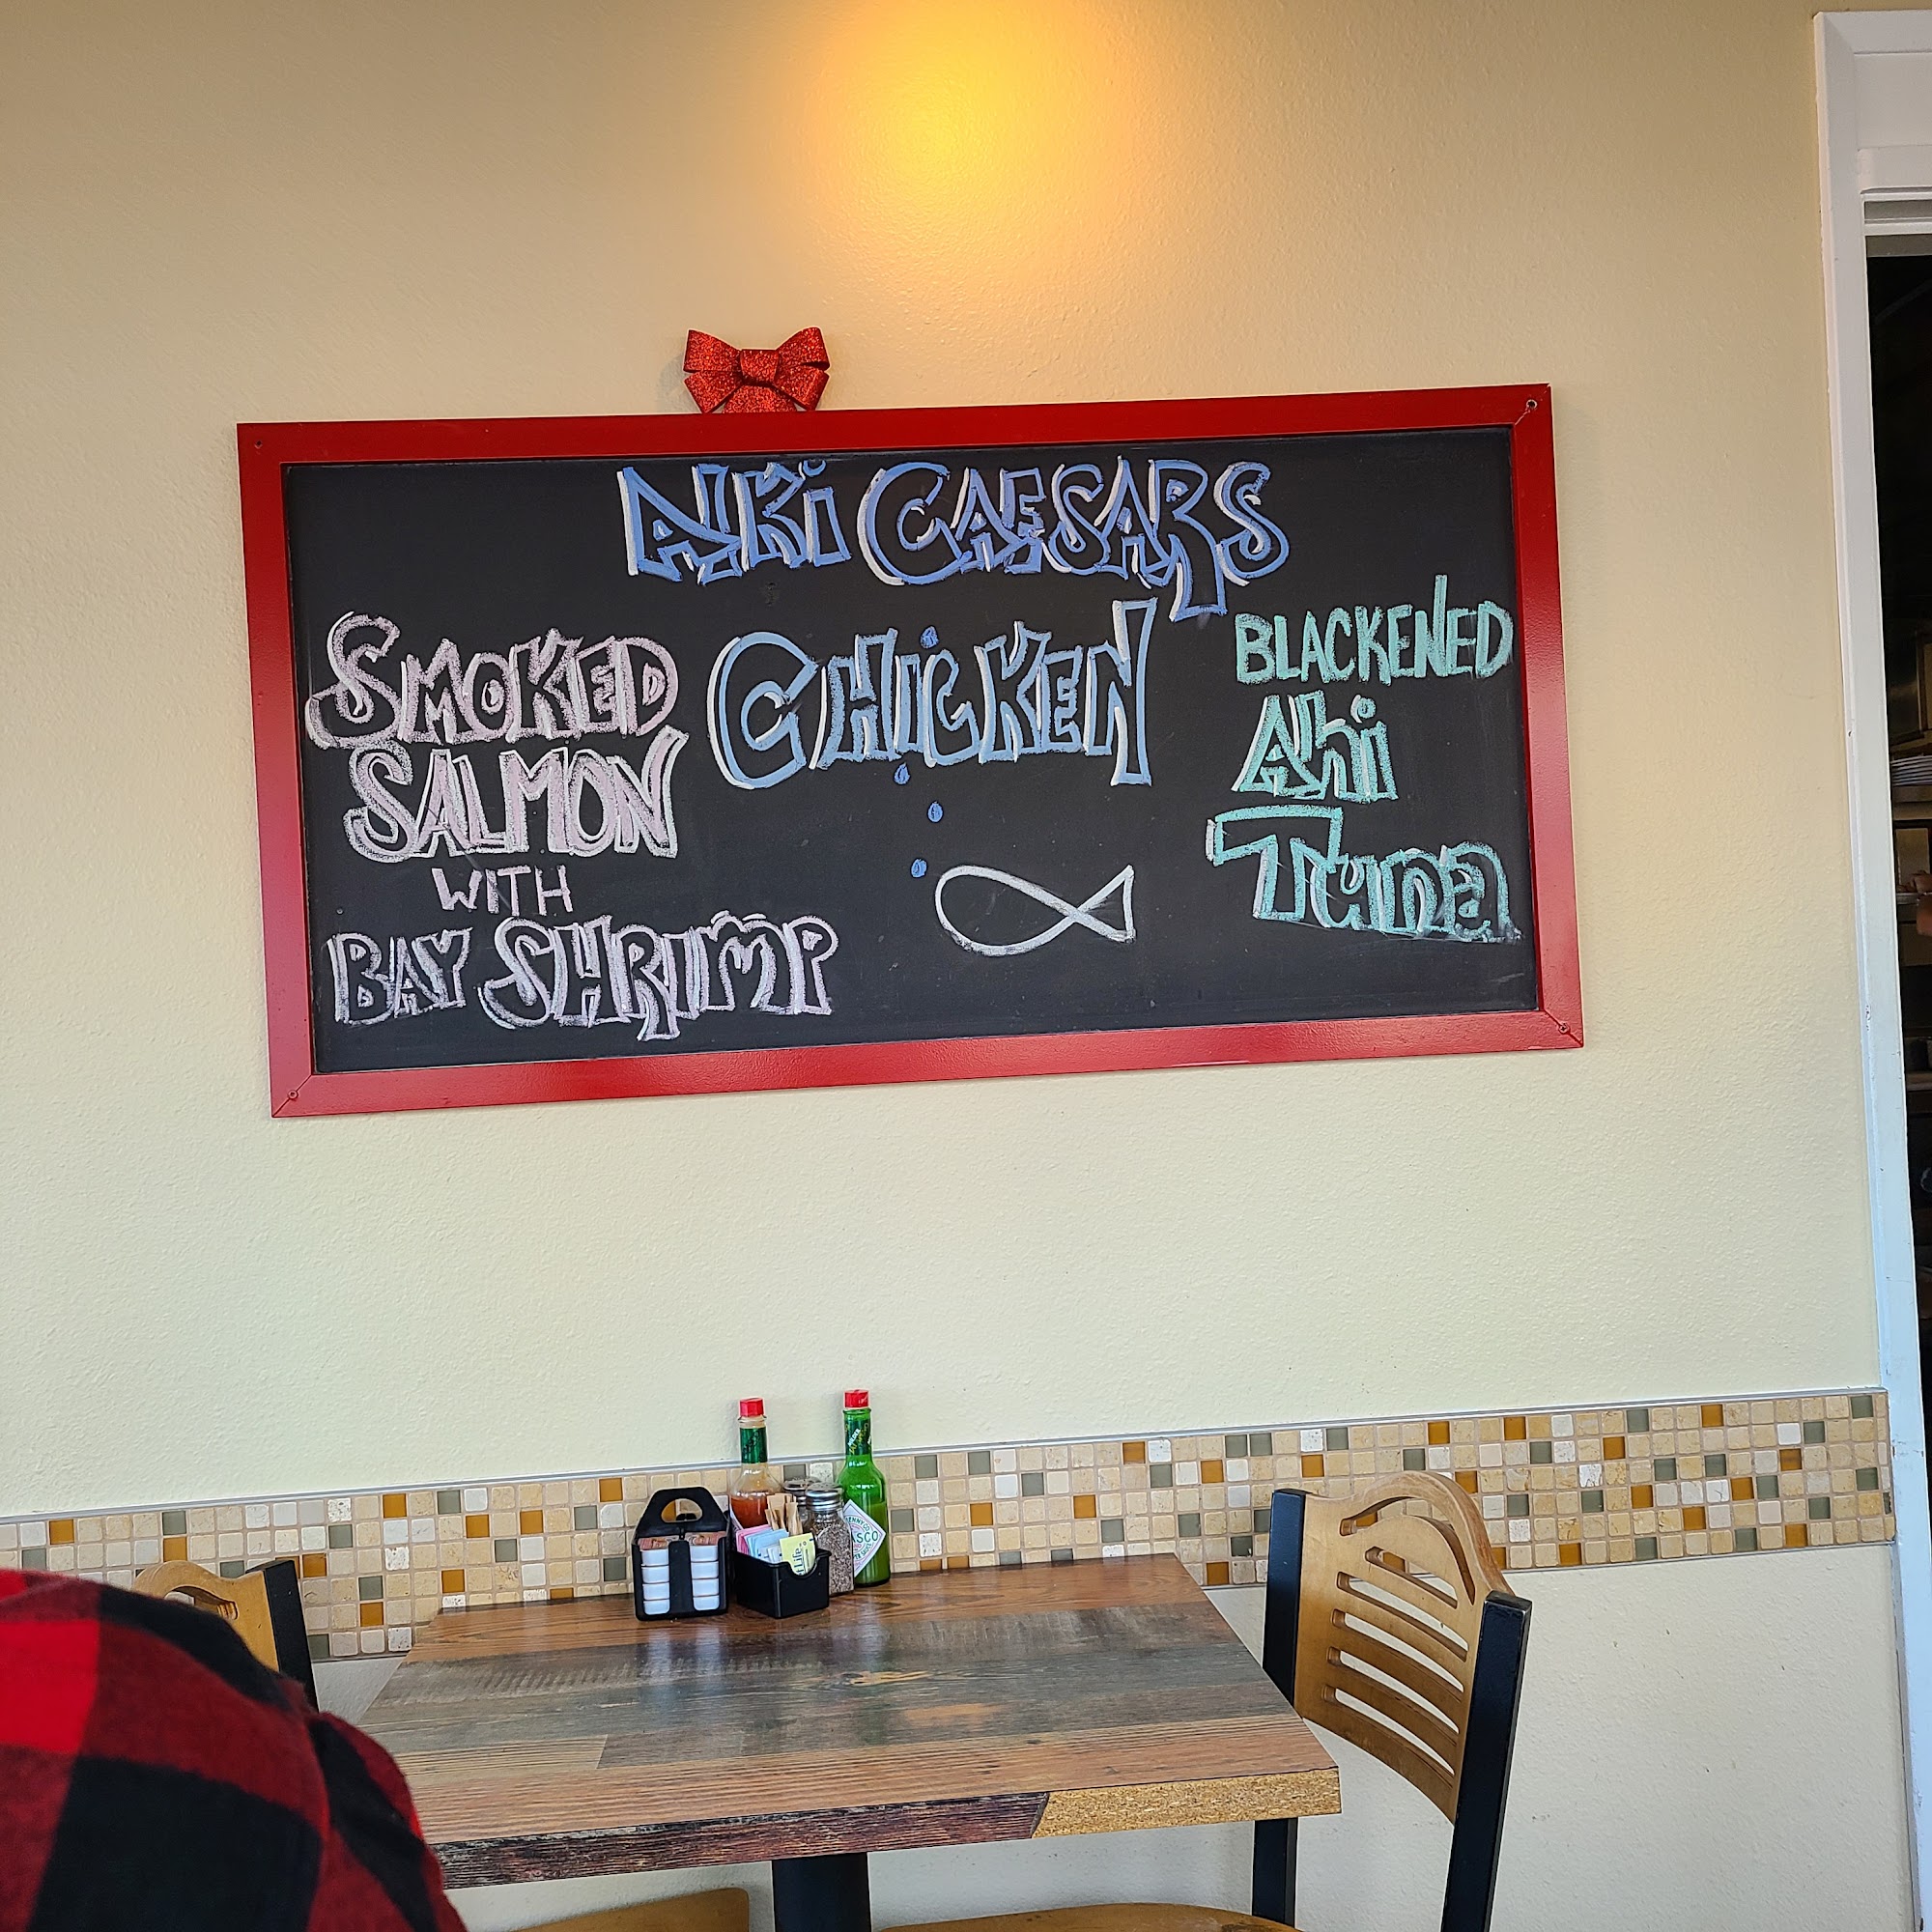 ALKi CAESARS
SMOKED
SALMON
WITH
BAY SHRIMP
CHiCKEN
BLACKENED
Ahi
Tuna
ASCO